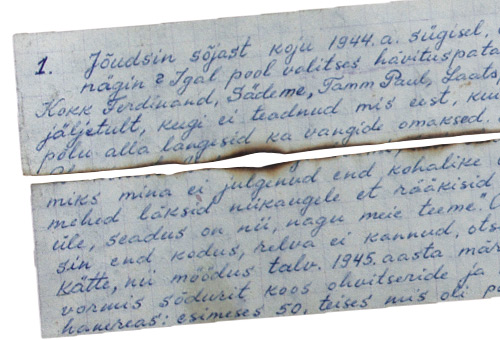 1. Jõudsin sõjast koju 1944.a. sügisel,
nägin? Igal pool valitses hävituspata
Kokk Ferdinand, Sädeme, Tamm Paul, Laats
jäljetult, keegi ei teadnud mis eest, kuu
põlu alla langesid ka vangide omaksed.
miks mina ei julgenud end kohalike
mehed läksid niikaugele et rääkisid
üle, seadus on nii, nagu meie teeme."
sin end kodus, relva ei kannud, ots
kätte, nii möödus talv. 1945. aasta mär
vormis sõdurit koos ohvitseride ja
hanereas: esimeses 50, teises mis oli